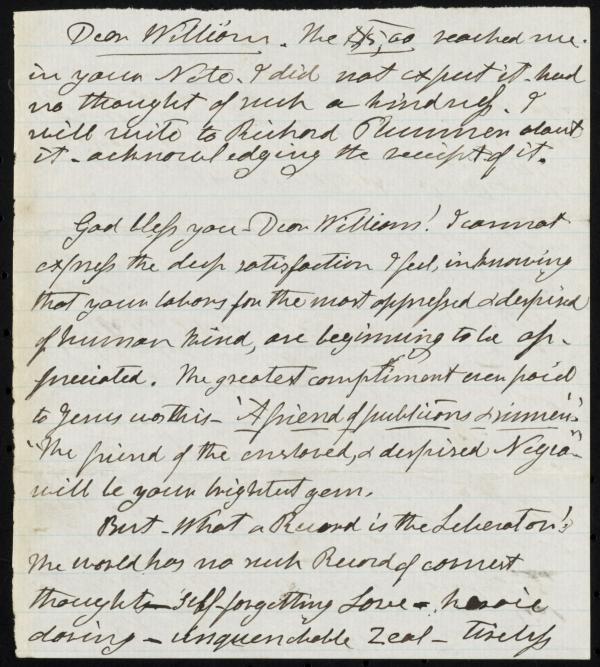 Dear William. The $5,00 reached me.
in your Note. I did not expect it - had
no thought of such a kindness. I
will write to Richard Plummer about
it - acknowledging the receipt of it.
God bless you - Dear William! I cannot
express the deep satisfaction I feel, in knowing
that your labors for the most oppressed & despised
of human kind, are beginning to be ap-
preciated. The greatest compliment ever paid
to Jesus was this - "A friend of publicans & sinners".
"The friend of the enslaved, & despised Negro" -
will be your brightest gem.
But - What a Record is the Liberator's
The world has no such Record of earnest
thought - self-forgetting Love - heroic
daring - unquenchable Zeal - tireless